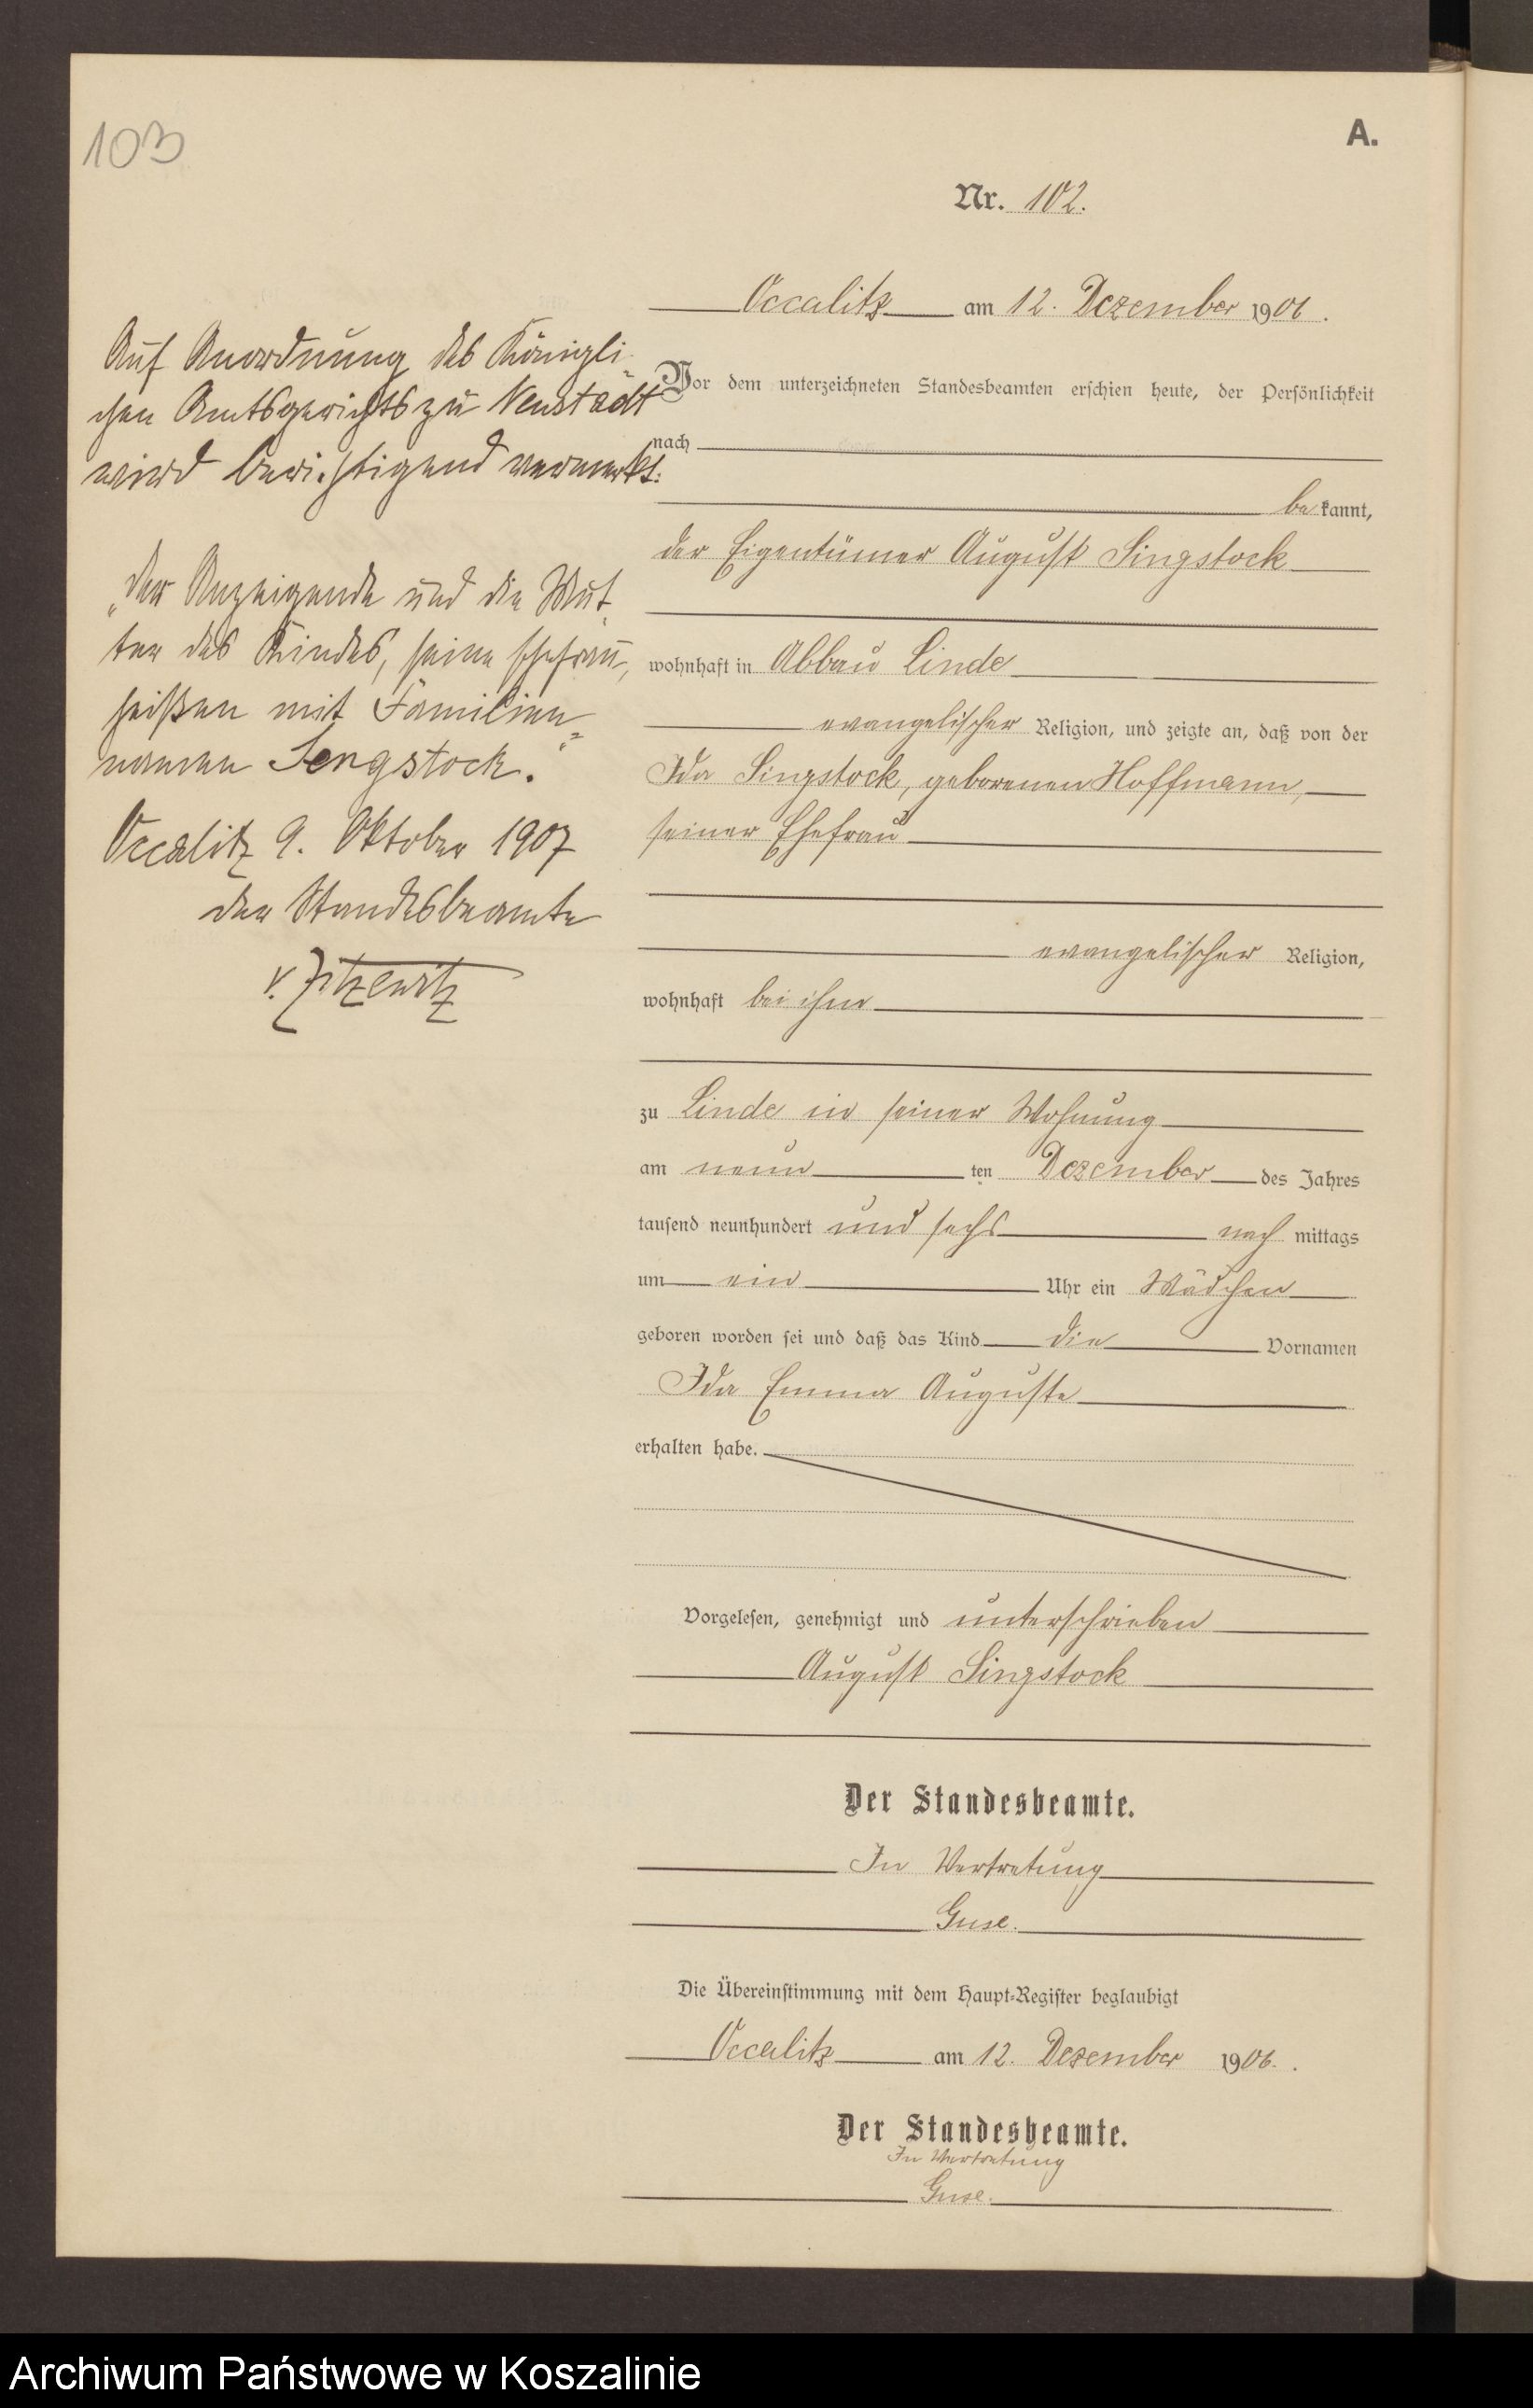 103
A.
Nr. 102.
Occalitz am 12. Dezember 1906.
Vor dem unterzeichneten Standesbeamten erschien heute, der Persönlichkeit
nach
bekannt,
der Eigentümer August Singstock
wohnhaft in Abbau Linde
evangelischer Religion, und zeigte an, daß von der
Ida Singstock, geborenen Hoffmann,
seiner Ehefrau
evangelischer Religion,
wohnhaft bei ihm
zu Linde in seiner Wohnung
am neunten Dezember des Jahres
tausend neunhundert und sechs nachmittags
um ein Uhr ein Mädchen
geboren worden sei und daß das Kind die Vornamen
Ida Emma Auguste
erhalten habe.
Vorgelesen, genehmigt und unterschrieben
August Singstock
Der Standesbeamte.
In Vertretung
Guse.
Die Übereinstimmung mit dem Haupt-Register beglaubigt
Occalitz am 12. Dezember 1906.
Der Standesbeamte.
In Vertretung
Guse.
Auf Anordnung des Königli-
chen Amtsgerichts zu Neustadt
wird berichtigend vermerkt:
„Der Anzeigende und die Mut-
ter des Kindes, seine Ehefrau,
heißen mit Familien-
namen Sengstock."
Occalitz 9. Oktober 1907
Der Standesbeamte
v. Zitzewitz
Archiwum Państwowe w Koszalinie